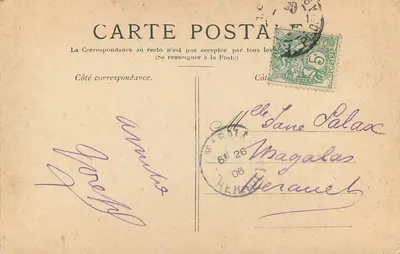 CARTE POSTA
La Correspondance au recto n'est pas acceptée par tous les
(Se renseigner à la Poste)
Côté correspondance.
Côté
5
Amitié
Joseph
Mlle Jane Salax
Magalas
Hérault
26
06
HERAULT